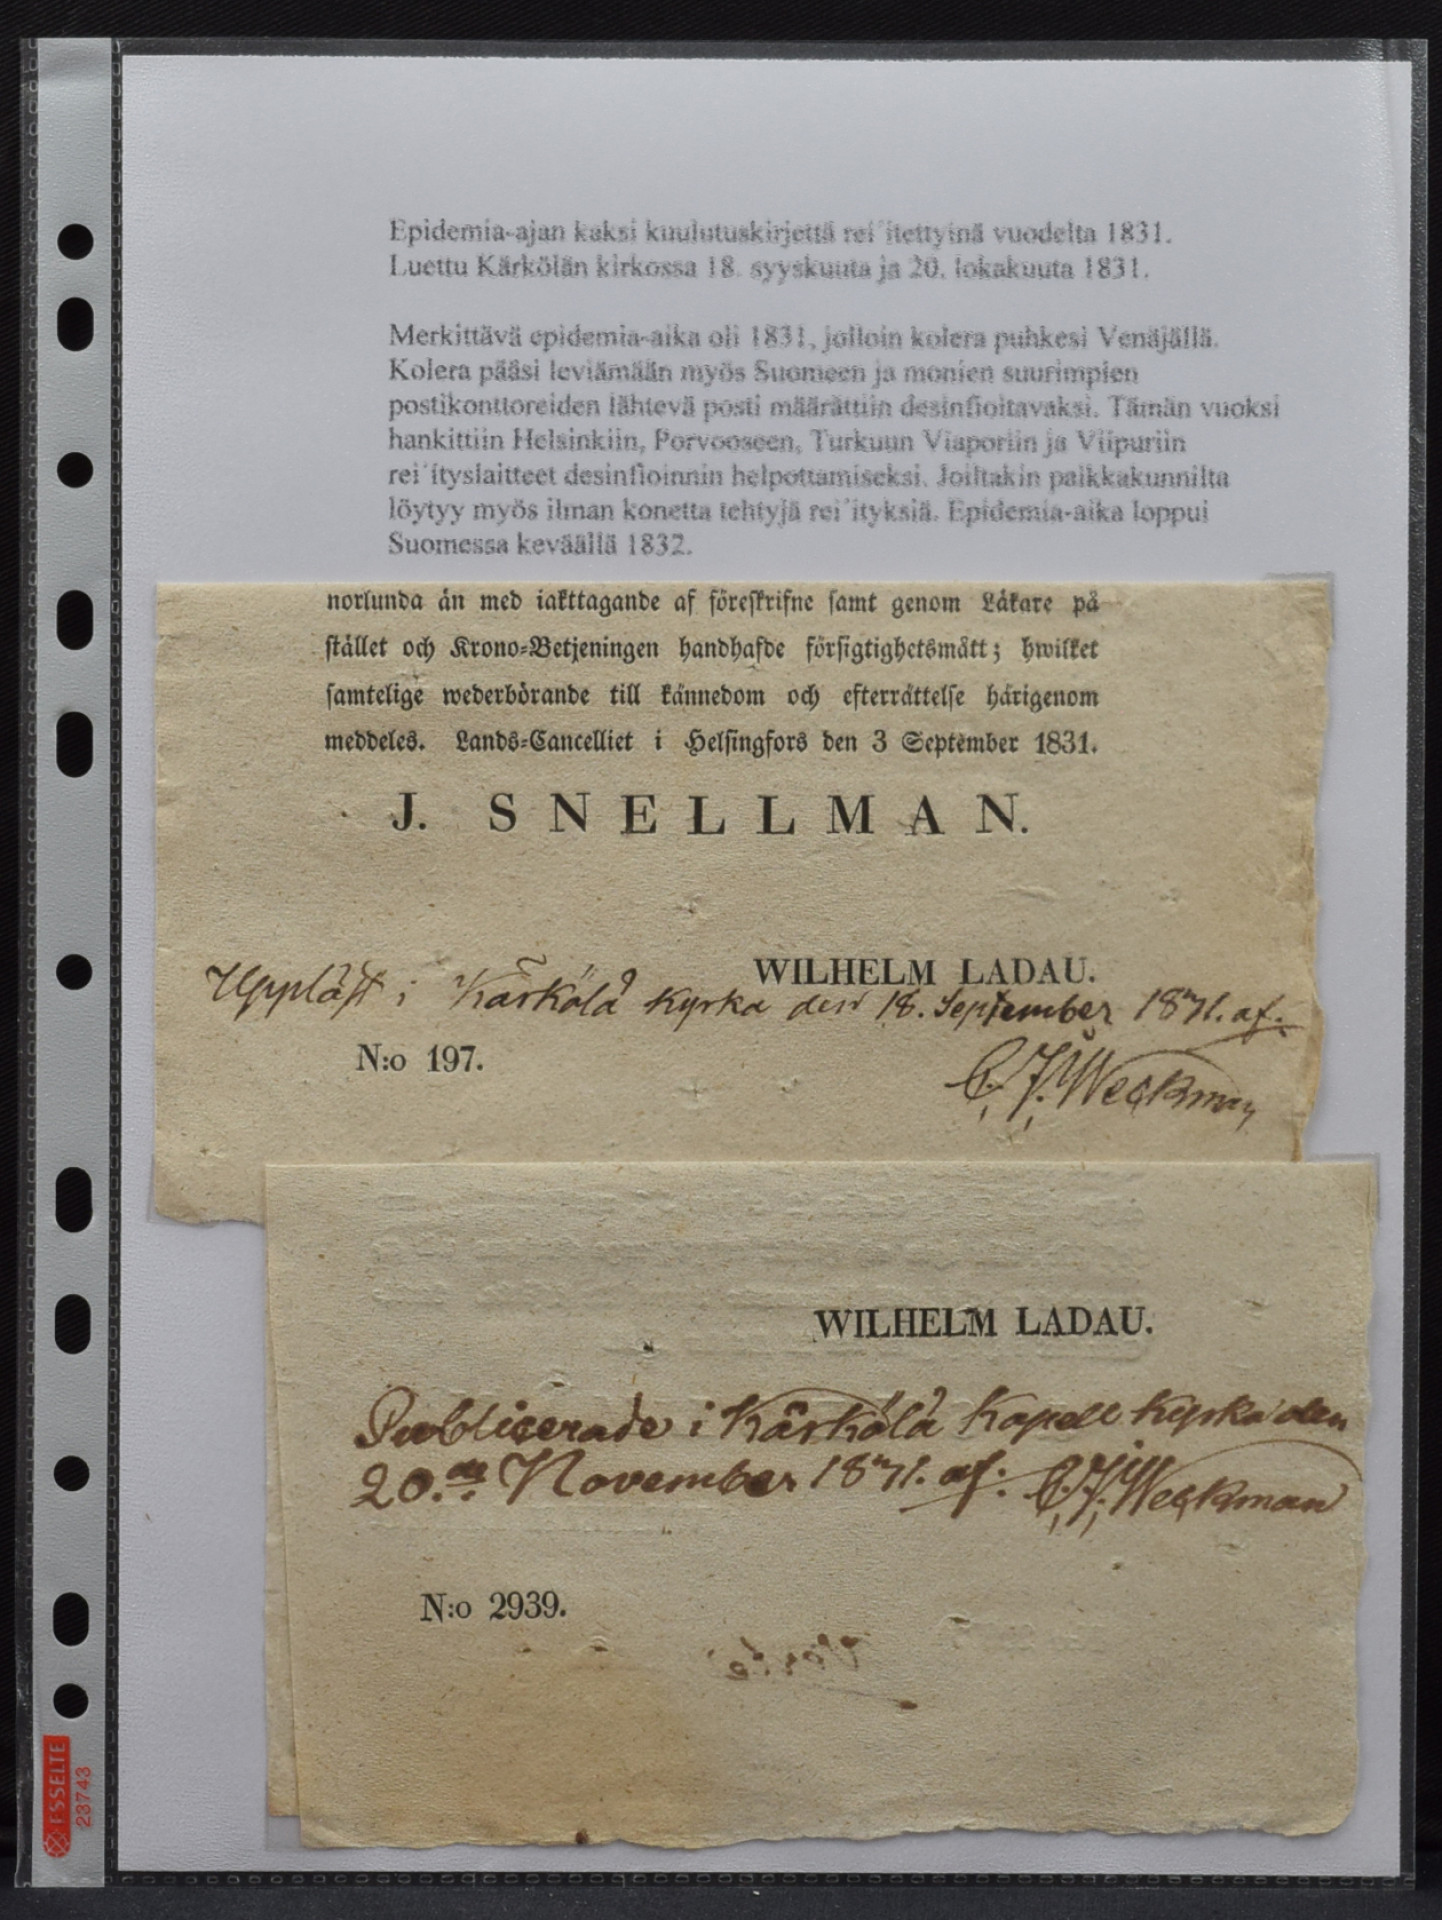 Epidemia-ajan kaksi kuulutuskirjettä rei´itettyinä vuodelta 1831.
Luettu Kärkölän kirkossa 18. syyskuuta ja 20. lokakuuta 1831.
Merkittävä epidemia-aika oli 1831, jolloin kolera puhkesi Venäjällä.
Kolera pääsi leviämään myös Suomeen ja monien suurimpien
postikonttoreiden lähtevä posti määrättiin desinfioitavaksi. Tämän vuoksi
hankittiin Helsinkiin, Porvooseen, Turkuun Viaporiin ja Viipuriin
rei´ityslaitteet desinfioinnin helpottamiseksi. Joiltakin paikkakunnilta
löytyy myös ilman konetta tehtyjä rei´ityksiä. Epidemia-aika loppui
Suomessa keväällä 1832.
norlunda än med iakttagande af föreskrifne samt genom Läkare på
stället och Krono-Betjeningen handhafde försigtighetsmått; hwilket
samtelige wederbörande till kännedom och efterrättelse härigenom
meddeles. Lands-Cancelliet i Helsingfors den 3 September 1831.
J. SNELLMAN.
WILHELM LADAU.
Uppläst i Kärkölä Kyrka den 18. September 1831. af.
N:o 197.
C. J. Weckman
WILHELM LADAU.
Publicerade i Kärkölä Kapell Kyrka den
20.de November 1831. af. C. J. Weckman
N:o 2939.
ESSELTE
23743